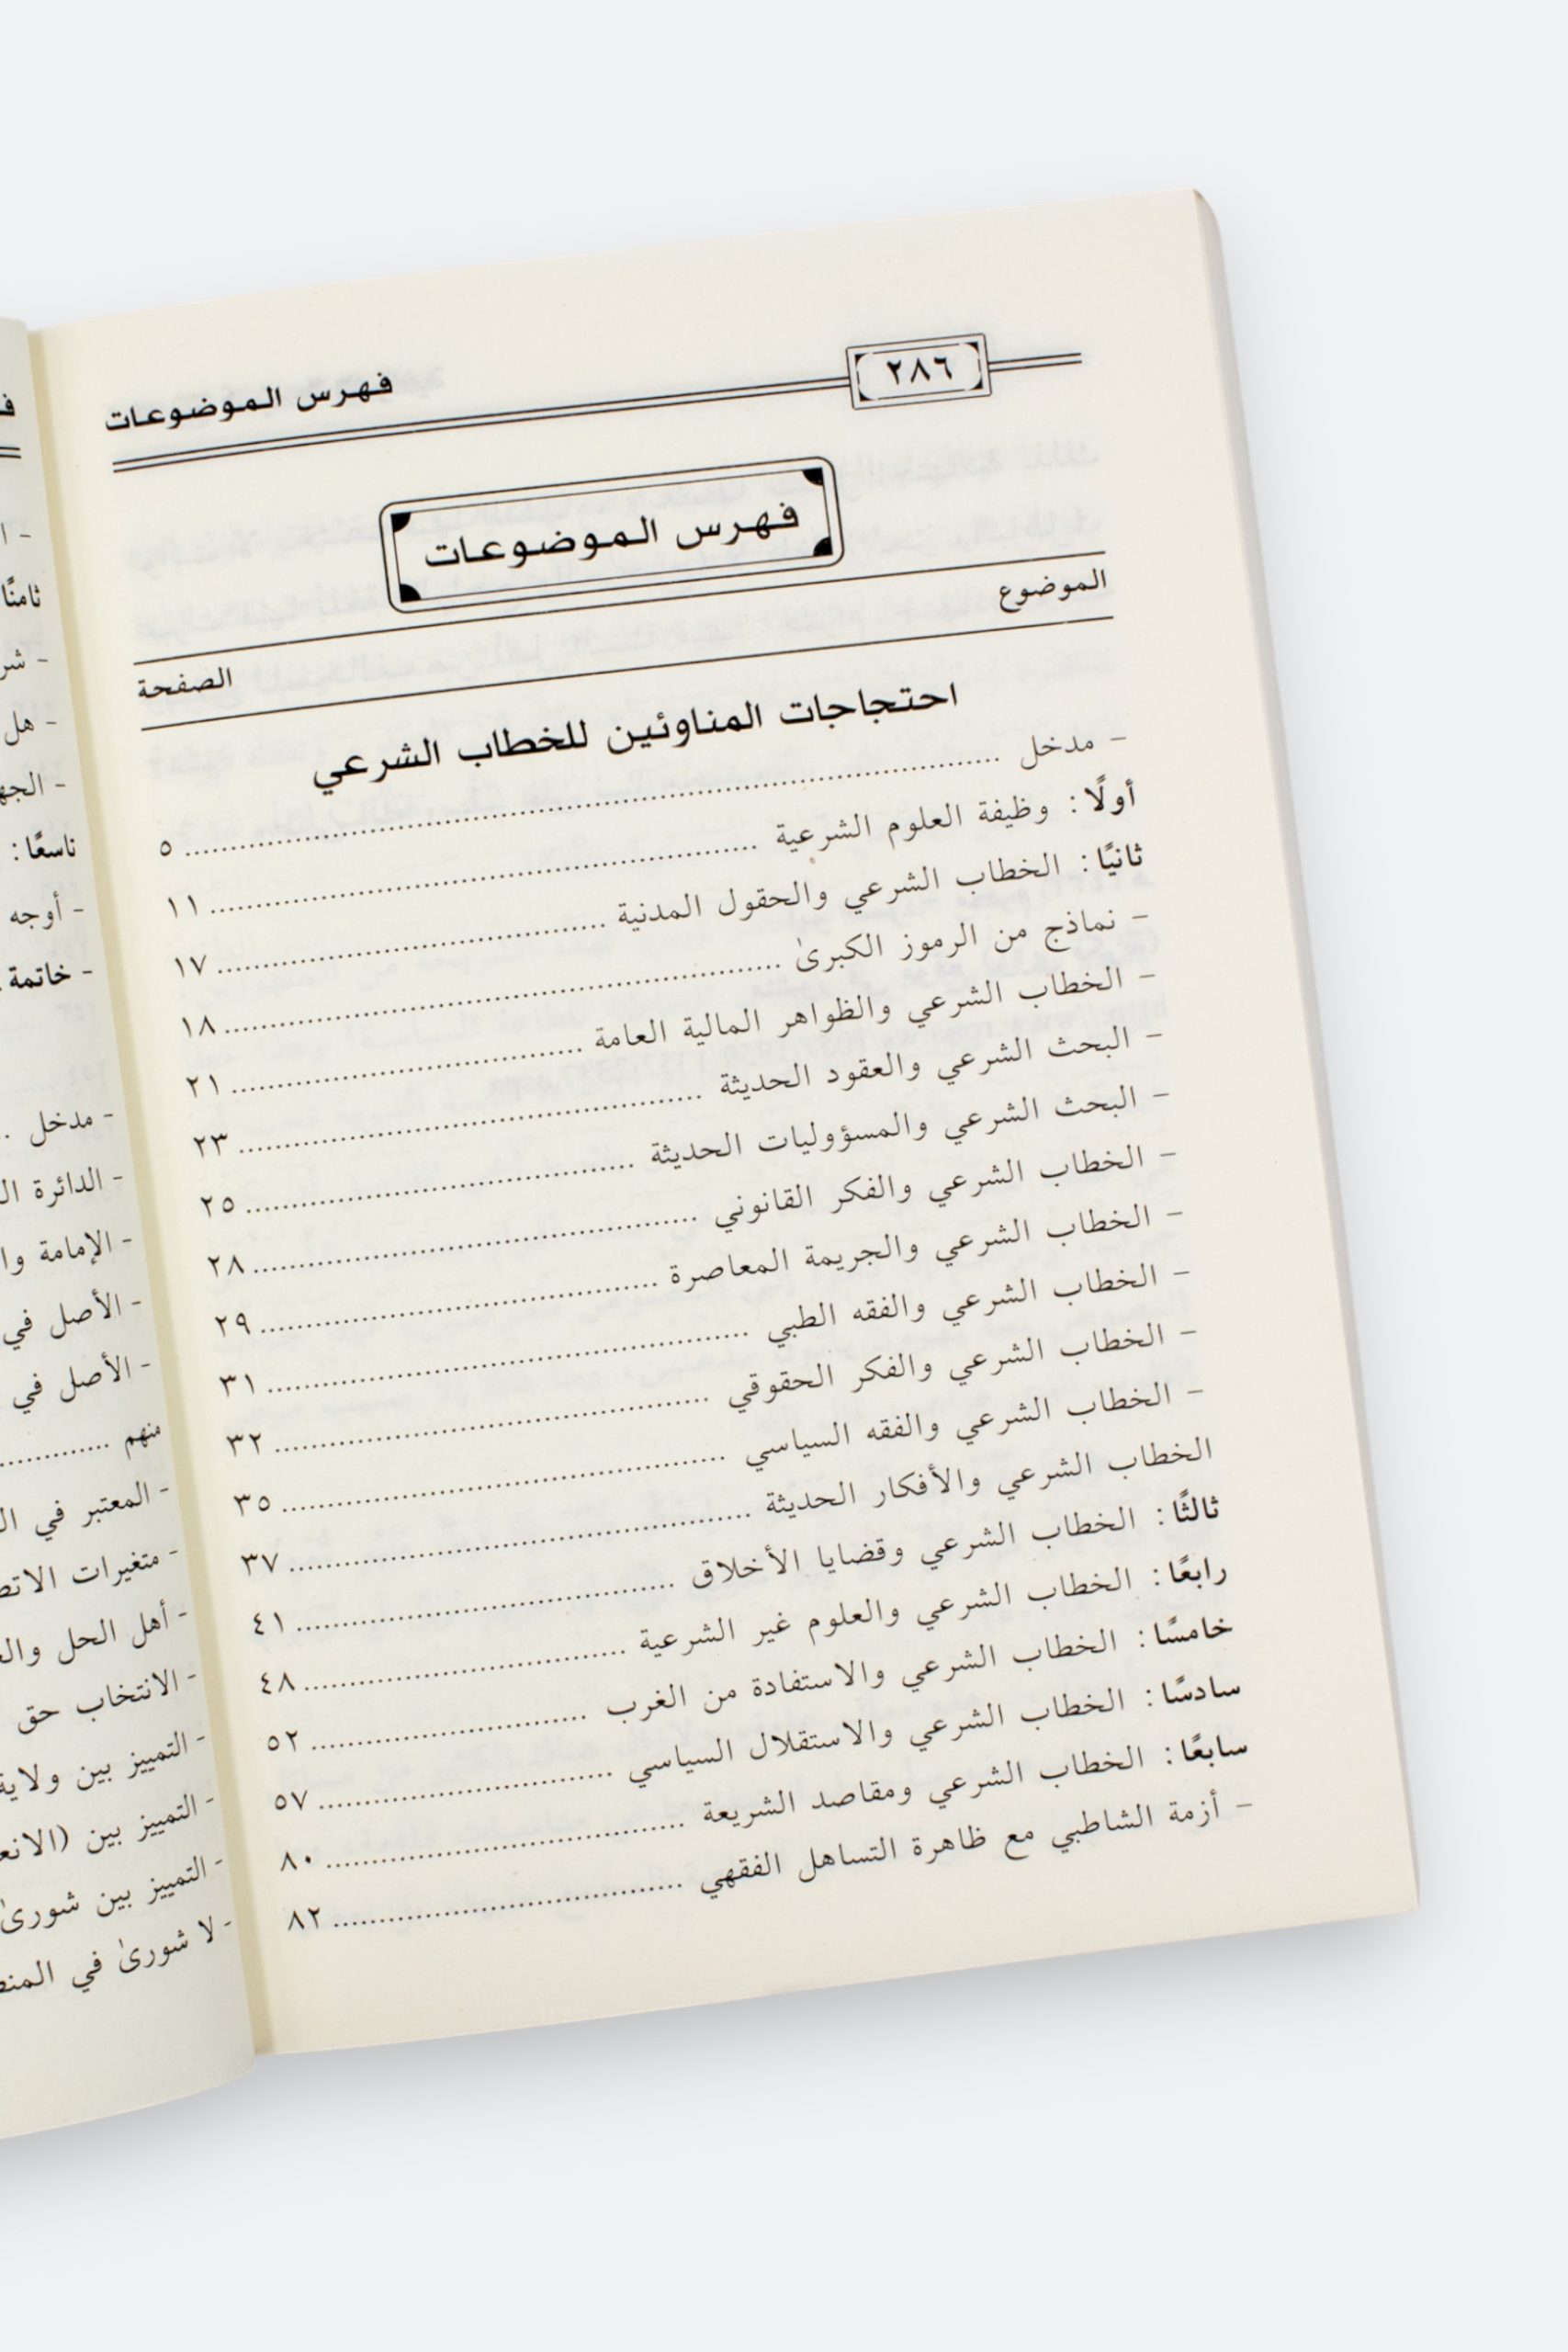 ٢٨٦
فهرس الموضوعات
فهرس الموضوعات
الموضوع
الصفحة
احتجاجات المناوئين للخطاب الشرعي
- مدخل ........ ٥
أولًا: وظيفة العلوم الشرعية ........ ١١
ثانيًا: الخطاب الشرعي والحقول المدنية ........ ١٧
- نماذج من الرموز الكبرىٰ ........ ١٨
- الخطاب الشرعي والظواهر المالية العامة ........ ٢١
- البحث الشرعي والعقود الحديثة ........ ٢٣
- البحث الشرعي والمسؤوليات الحديثة ........ ٢٥
- الخطاب الشرعي والفكر القانوني ........ ٢٨
- الخطاب الشرعي والجريمة المعاصرة ........ ٢٩
- الخطاب الشرعي والفقه الطبي ........ ٣١
- الخطاب الشرعي والفكر الحقوقي ........ ٣٢
- الخطاب الشرعي والفقه السياسي ........ ٣٥
الخطاب الشرعي والأفكار الحديثة ........ ٣٧
ثالثًا: الخطاب الشرعي وقضايا الأخلاق ........ ٤١
رابعًا: الخطاب الشرعي والعلوم غير الشرعية ........ ٤٨
خامسًا: الخطاب الشرعي والاستفادة من الغرب ........ ٥٢
سادسًا: الخطاب الشرعي والاستقلال السياسي ........ ٥٧
سابعًا: الخطاب الشرعي ومقاصد الشريعة ........ ٨٠
- أزمة الشاطبي مع ظاهرة التساهل الفقهي ........ ٨٢
ثامنًا
- هل
تاسعًا:
- أوجه
- خاتمة
- مدخل
- الدائرة
- الإمامة
- الأصل في
- الأصل في
منهم ........
- المعتبر في
- متغيرات
- أهل الحل
- الانتخاب حق
- التمييز بين ولاية
- التمييز بين
- التمييز بين شورىٰ
- لا شورىٰ في